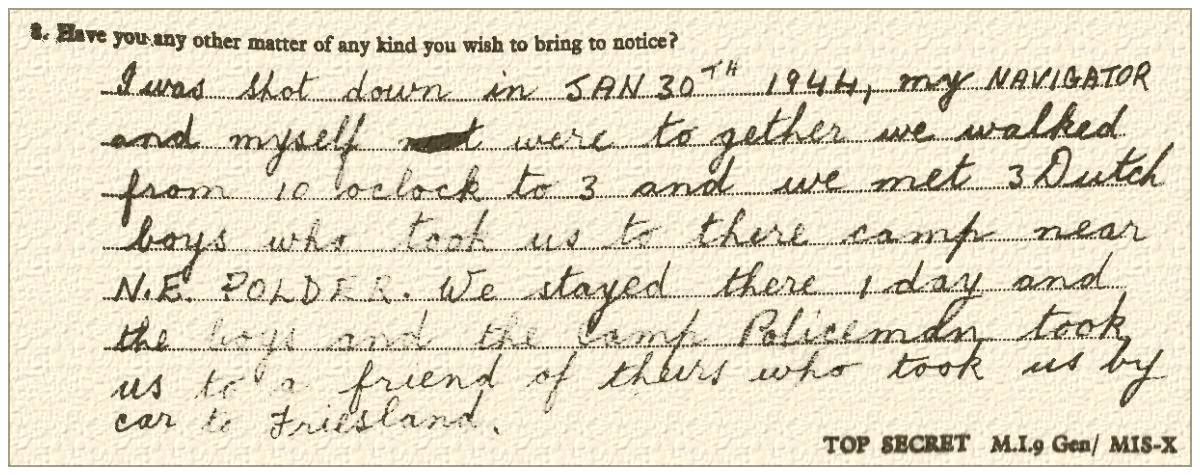 8. Have you any other matter of any kind you wish to bring to notice?
I was shot down in JAN 30TH 1944, my NAVIGATOR
and myself were to gether we walked
from 10 oclock to 3 and we met 3 Dutch
boys who took us to there camp near
N.E. POLDER. We stayed there 1 day and
the boys and the Camp Policeman took
us to a friend of theirs who took us by
car to Friesland.
TOP SECRET M.I.9 Gen/ MIS-X